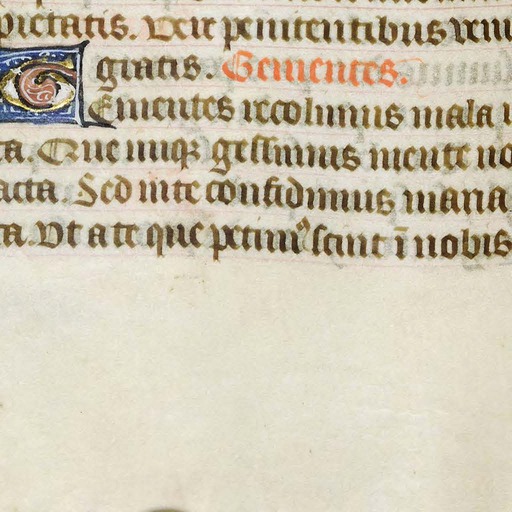 pietatis. Vere penitentibus veni
gratis. Gementes.
Gementes recolimus mala
ta. Que nuqꝫ gessimus mente no
acta. Sed in te confidimus maria
ta. Ut a te que petimꝰ sint ī nobis